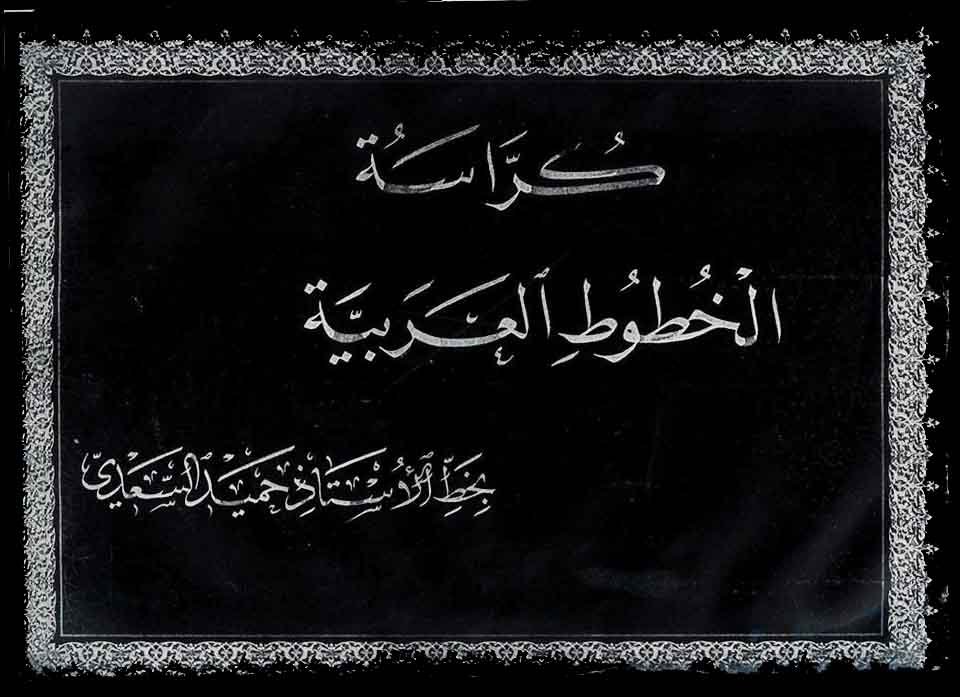 كُرَّاسَةُ
الْخُطُوطِ الْعَرَبِيَّةِ
بِخَطِّ الْأُسْتَاذِ حَمِيدِ السَّعْدِيّ